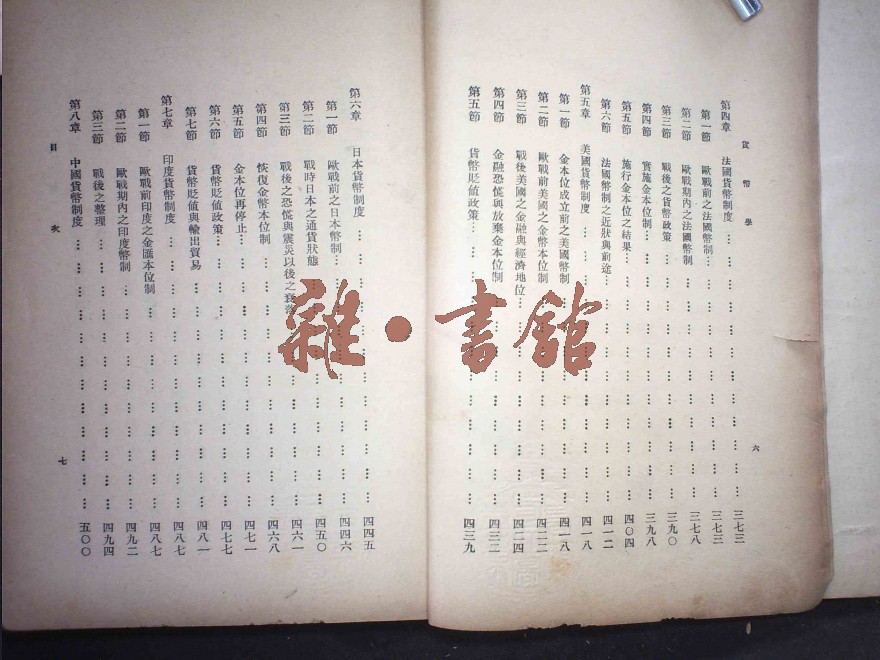 貨幣學
第四章 法國貨幣制度 三七三
第一節 歐戰前之法國幣制 三七三
第二節 歐戰期內之法國幣制 三七八
第三節 戰後之貨幣政策 三九〇
第四節 實施金本位制 三九八
第五節 施行金本位之結果 四〇四
第六節 法國幣制之近狀與前途 四一二
第五章 美國貨幣制度 四一八
第一節 金本位成立前之美國幣制 四一八
第二節 歐戰前美國之金幣本位制 四二二
第三節 戰後美國之金融與經濟地位 四二四
第四節 金融恐慌與放棄金本位制 四三二
第五節 貨幣貶値政策 四三九
六
第六章 日本貨幣制度 四四五
第一節 歐戰前之日本幣制 四四六
第二節 戰時日本之通貨狀態 四五〇
第三節 戰後之恐慌與震災以後之衰落 四六一
第四節 恢復金幣本位制 四六八
第五節 金本位再停止 四七一
第六節 貨幣貶値政策 四七七
第七節 貨幣貶値與輸出貿易 四八一
第七章 印度貨幣制度 四八七
第一節 歐戰前印度之金匯本位制 四八七
第二節 歐戰期內之印度幣制 四九二
第三節 戰後之整理 四九四
第八章 中國貨幣制度 五〇〇
目次
七
雜·書館